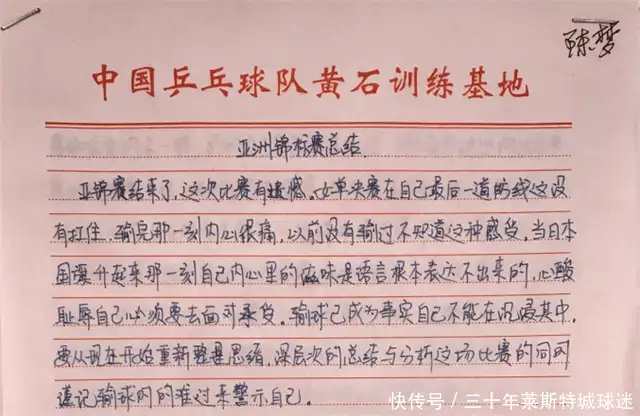 陈梦
中国乒乓球队黄石训练基地
亚洲锦标赛总结.
亚锦赛结束了,这次比赛有遗憾。女单决赛在自己最后一道防线这没
有扛住,输完那一刻内心很痛,以前没有输过不知道这种感受。当日本
国旗升起来那一刻自己内心里的滋味是语言根本表达不出来的,心酸
耻辱自己必须要去面对承受。输球已成为事实自己不能在沉浸其中,
要从现在开始重新整理思绪,深层次的总结与分析这场比赛的同时
谨记输球时的难过来警示自己.
快传号/三十年莱斯特城球迷